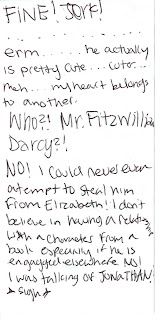 FINE! JERK!
. . . . . . . . . . . . . .
erm....... he actually
is pretty cute... cute...
meh... my heart belongs
to another.
Who?! Mr. Fitzwilliam
Darcy?!
NO! I could never even
attempt to steal him
from Elizabeth! I don't
believe in having a relationship
with a character from a
book especially if he is
engaged elsewhere NO!
I was talking of JONATHAN!
*sigh*